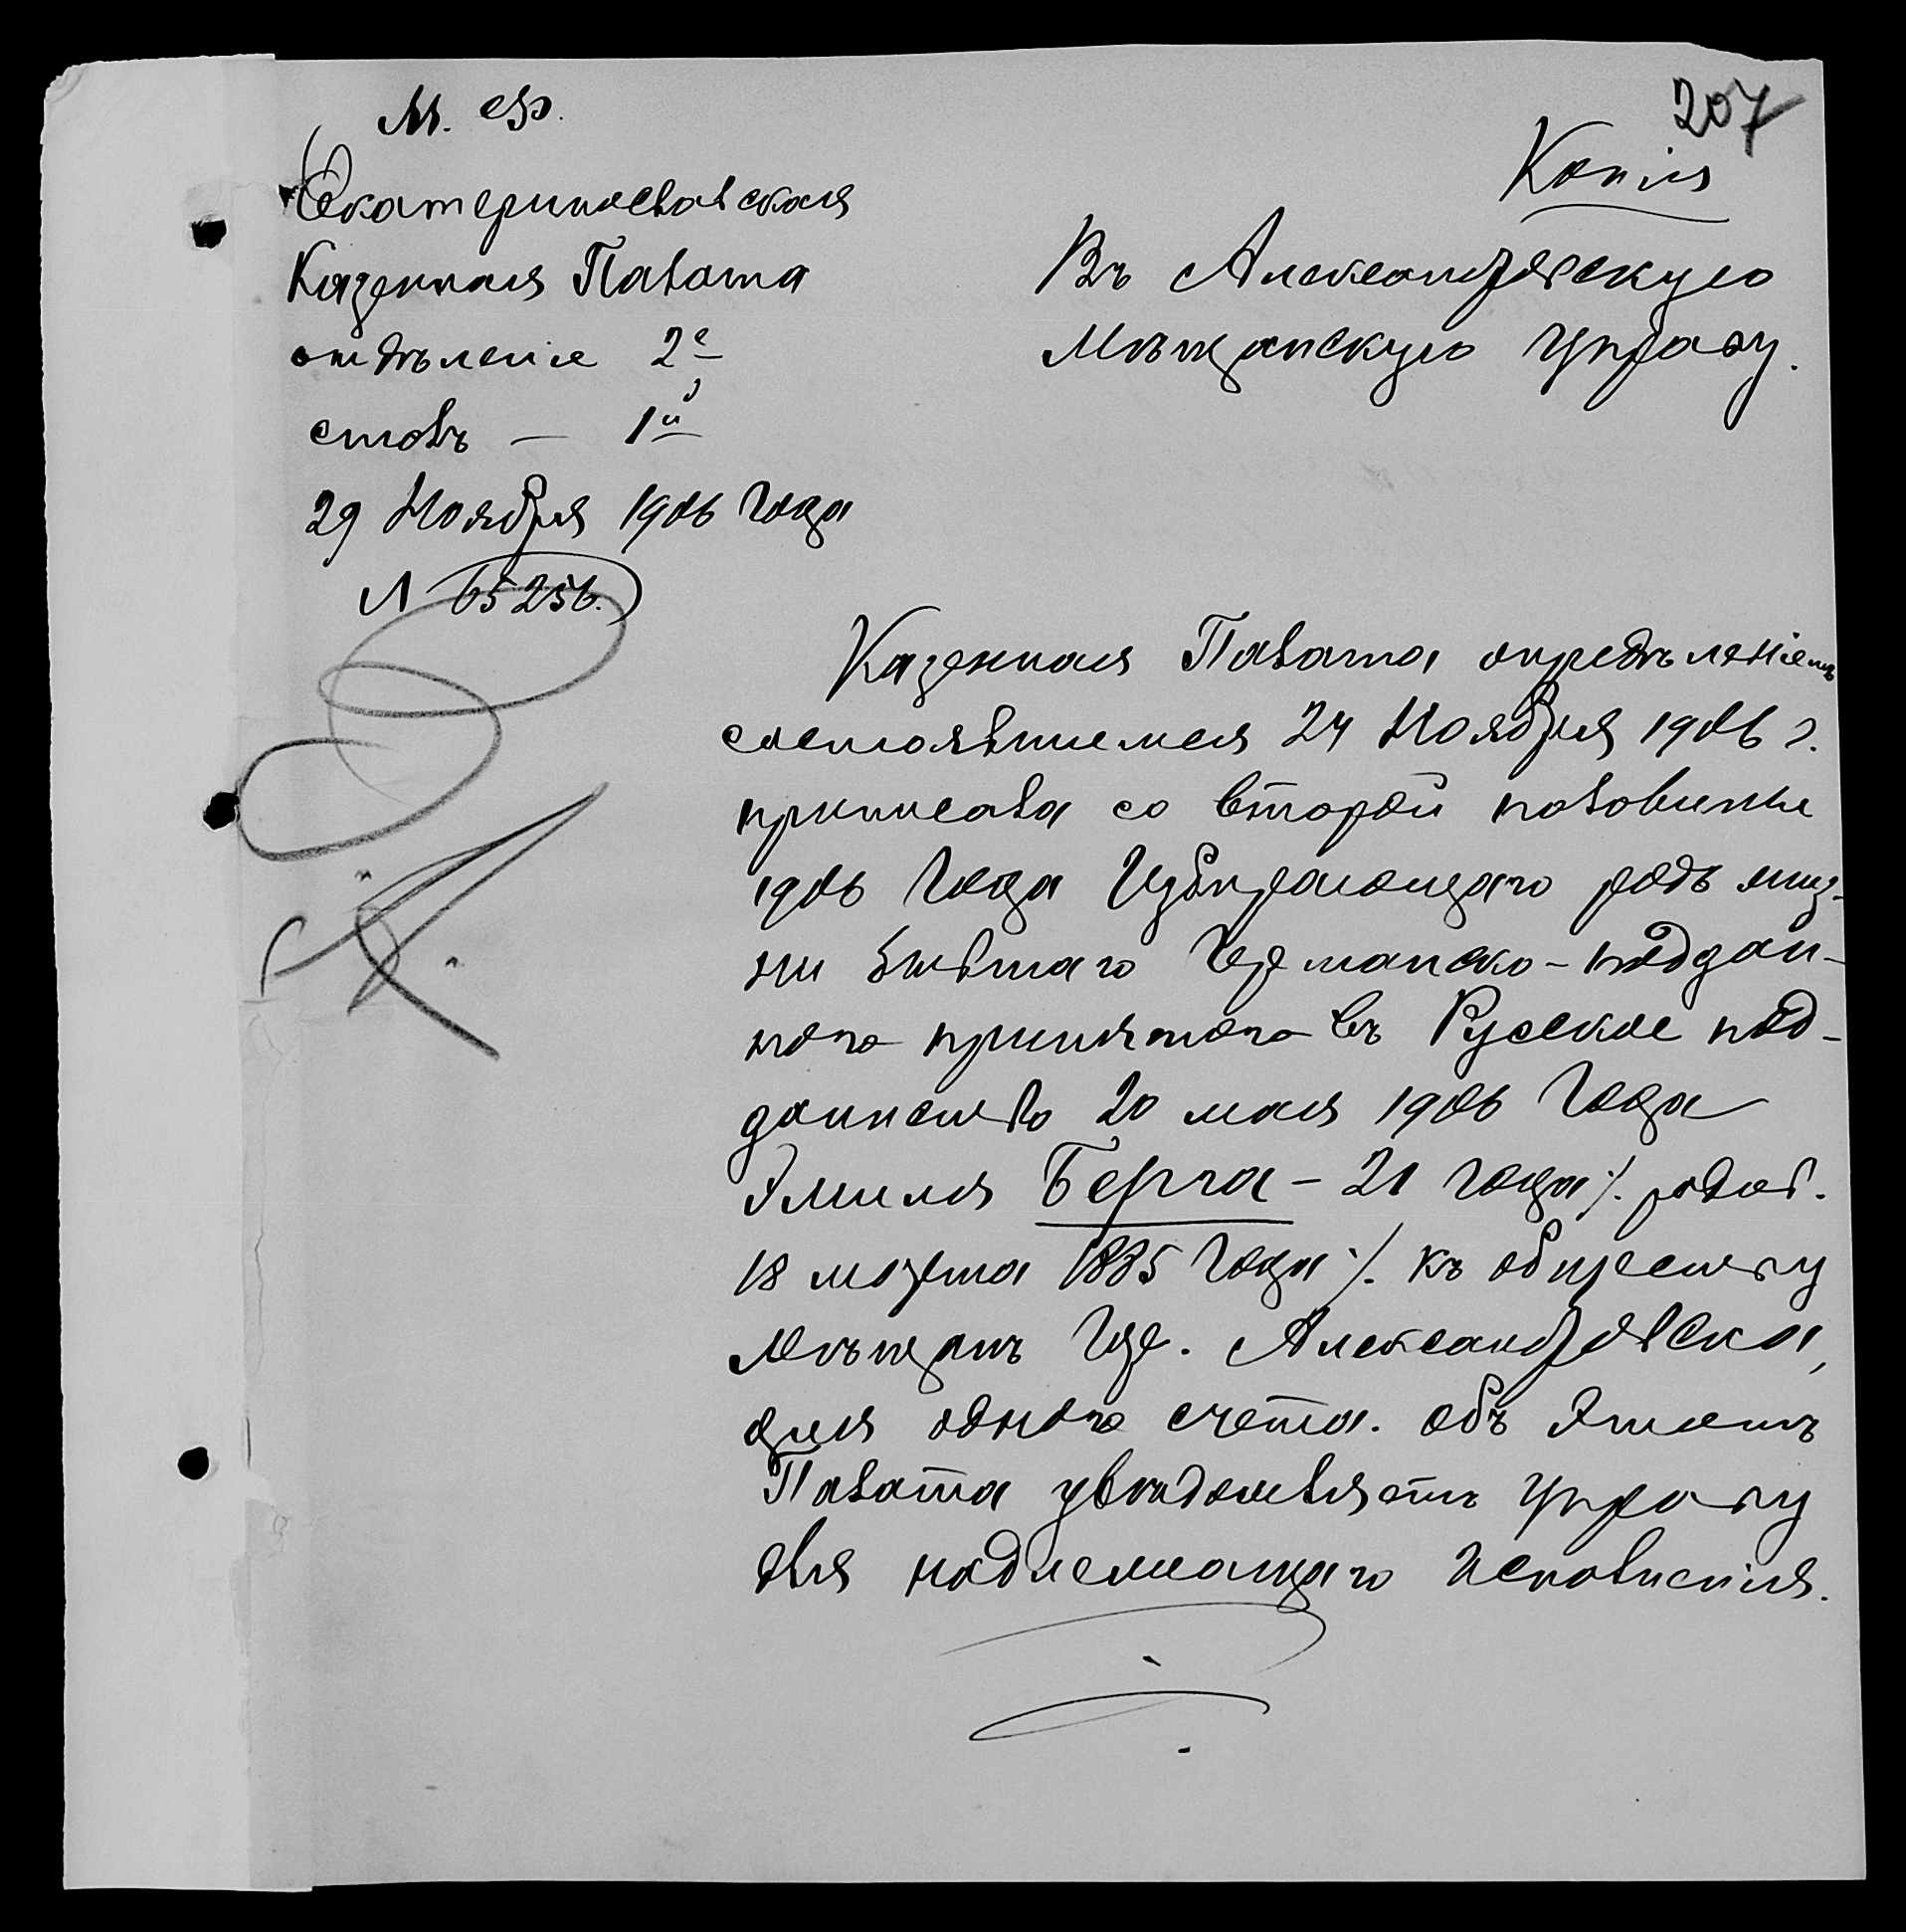 207
М. Ф.
Копія
Екатеринославская
Казенная Палата
отдѣленіе 2е
столъ — 1й
29 Ноября 1906 года
№ 65256.
Въ Александровскую
Мѣщанскую Управу.
Казенная Палата опредѣленіемъ
состоявшемся 24 Ноября 1906 г.
приписала со второй половины
1906 года Избирающаго родъ жиз-
ни бывшаго Германско-поддан-
ного принятого въ Русское под-
данство 20 мая 1906 года
Эмиля Берга – 21 года /. родов.
18 марта 1885 года /. къ обществу
мѣщанъ гор. Александровска,
для одного счета. объ этомъ
Палата увѣдомляетъ управу
для надлежащаго исполненія.